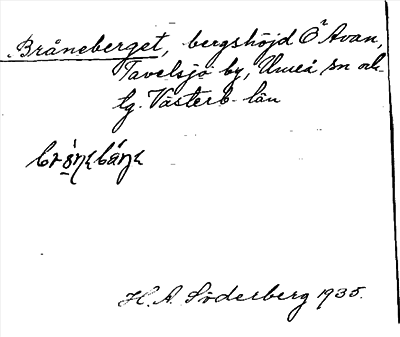 Bråneberget, bergshöjd Ö Avan,
Tavelsjö by, Umeå sn och
lg. Västerb. län
H. A. Söderberg 1935.